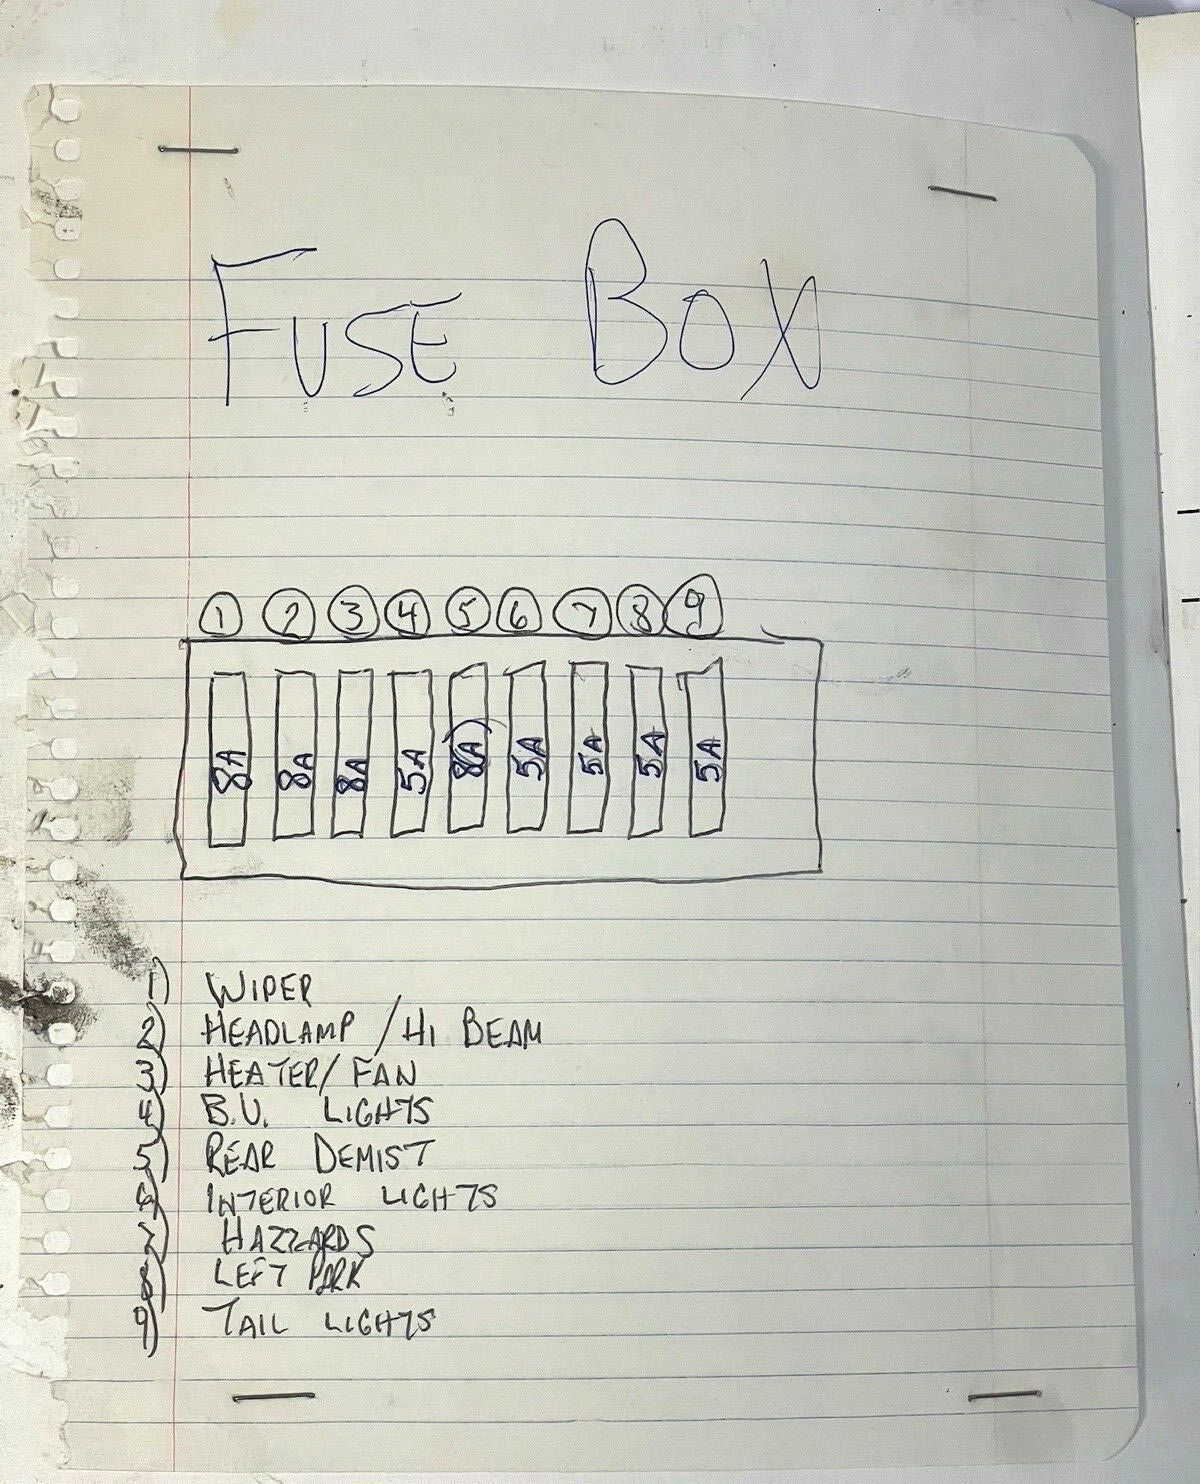 FUSE BOX
1 2 3 4 5 6 7 8 9
8A 8A 8A 5A 8A 5A 5A 5A 5A
1) WIPER
2) HEADLAMP / HI BEAM
3) HEATER / FAN
4) B.U. LIGHTS
5) REAR DEMIST
6) INTERIOR LIGHTS
7) HAZZARDS
8) LEFT PARK
9) TAIL LIGHTS